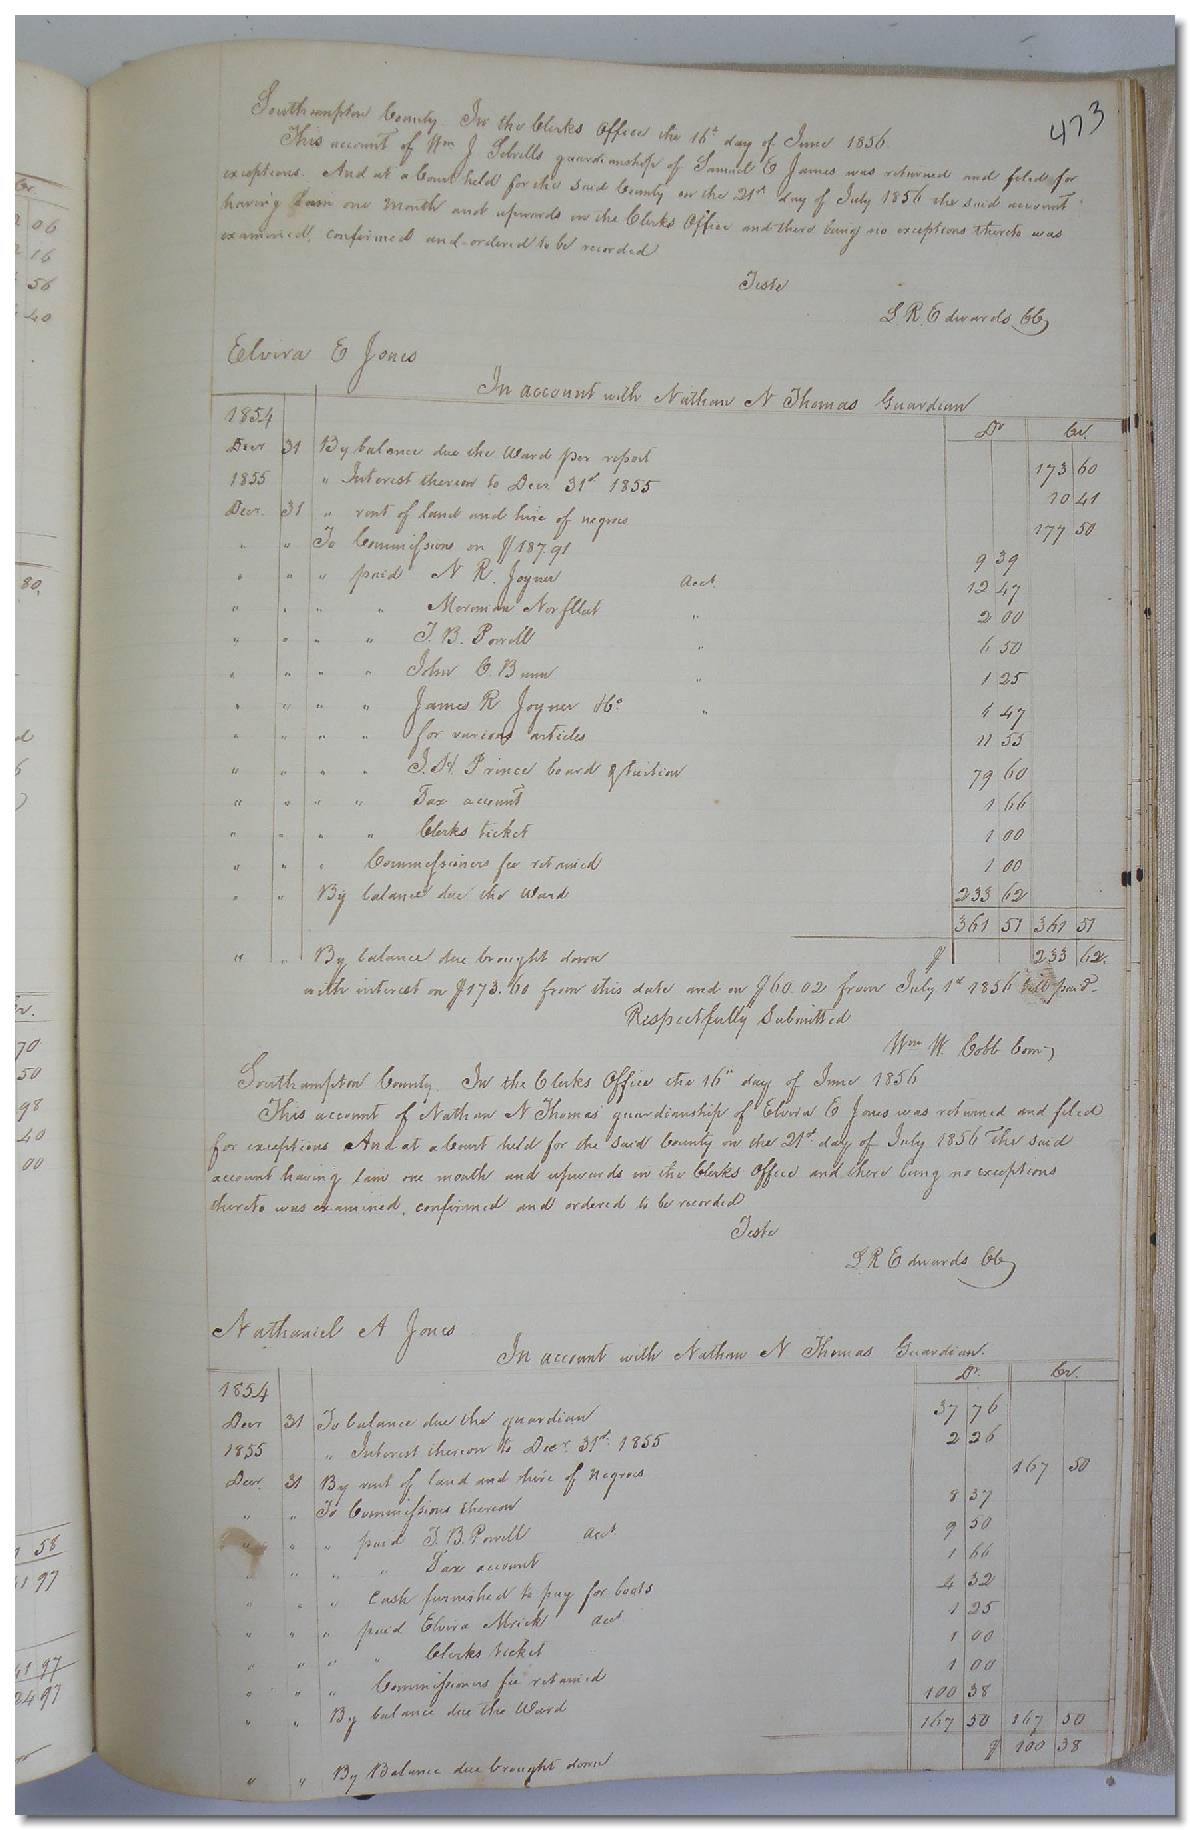 473
Southampton County. In the Clerks Office the 16th day of June 1856.
This account of Wm J Sebrells guardianship of Samuel E James was returned and filed for
exceptions. And at a Court held for the said County on the 21st day of July 1856 the said account
having lain one month and upwards in the Clerks Office and there being no exceptions thereto was
examined, confirmed and ordered to be recorded
Teste
L R Edwards CC
Elvira E Jones
In account with Nathan N Thomas Guardian
1854 Dr Cr.
Decr 31 By balance due the Ward per report 173 60
1855 " Interest thereon to Decr 31st 1855 10 41
Decr. 31 " rent of land and hire of negroes 177 50
" " To Commissions on $187.91 9 39
" " " paid N R. Joyner Acct. 12 47
" " " " Norfleet " 2 00
" " " " T. B. Powell " 6 50
" " " " John C. Bunn " 1 25
" " " " James R Joyner &Co " 47
" " " " for various articles 11 55
" " " " J. H. Prince board & tuition 79 60
" " " " Tax account 1 66
" " " " Clerks ticket 1 00
" " " Commissioners fee retained 1 00
" " By balance due the Ward 233 62
361 51 361 51
" " By balance due brought down $ 233 62.
with interest on $173.60 from this date and on $60.02 from July 1st 1856 till paid.
Respectfully Submitted
Wm W. Cobb Com
Southampton County. In the Clerks Office the 16th day of June 1856
This account of Nathan N Thomas' guardianship of Elvira E Jones was returned and filed
for exceptions And at a Court held for the said County on the 21st day of July 1856 The said
account having lain one month and upwards in the Clerks Office and there being no exceptions
thereto was examined, confirmed and ordered to be recorded
Teste
L R Edwards CC
Nathaniel A Jones
In account with Nathan N Thomas Guardian.
1854 Dr. Cr.
Decr 31 To balance due the guardian 37 76
1855 " Interest thereon to Decr. 31st. 1855 2 26
Decr. 31 By rent of land and hire of negroes 167 50
" " To Commissions thereon 8 37
" " " paid T. B. Powell acct 9 50
" " " " Tax account 1 66
" " " Cash furnished to pay for boots 4 32
" " " paid Elvira acct 1 25
" " " " Clerks ticket 1 00
" " " Commissioners fee retained 1 00
" " By balance due the Ward 100 38
167 50 167 50
" " By Balance due brought down $ 100 38